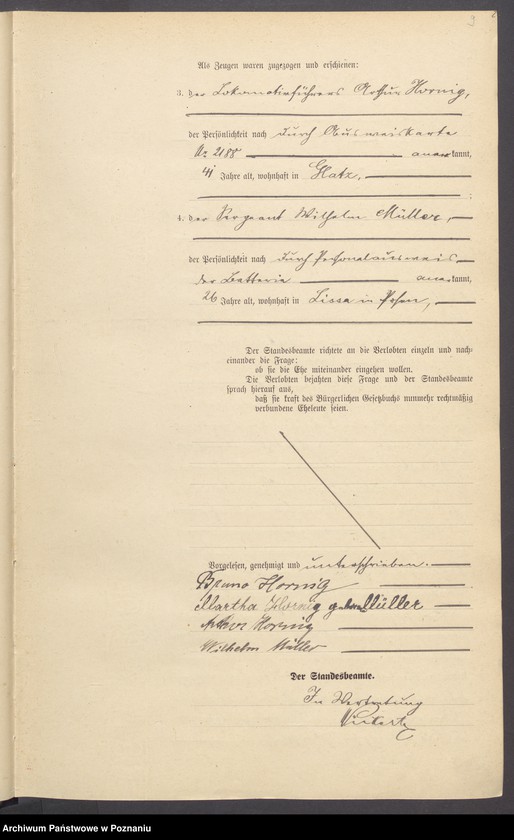 9
Als Zeugen waren zugezogen und erschienen:
3. der Lokomotivführers Arthur Hornig,
der Persönlichkeit nach durch Ausweiskarte
Nr 2188 anerkannt,
41 Jahre alt, wohnhaft in Glatz,
4. der Sergeant Wilhelm Müller,
der Persönlichkeit nach durch Personalausweis
der Batterie anerkannt,
26 Jahre alt, wohnhaft in Lissa in Posen,
Der Standesbeamte richtete an die Verlobten einzeln und nach-
einander die Frage:
ob sie die Ehe miteinander eingehen wollen.
Die Verlobten bejahten diese Frage und der Standesbeamte
sprach hierauf aus,
daß sie kraft des Bürgerlichen Gesetzbuchs nunmehr rechtmäßig
verbundene Eheleute seien.
Vorgelesen, genehmigt und unterschrieben.
Bruno Hornig
Martha Hornig geborene Müller
Arthur Hornig
Wilhelm Müller
Der Standesbeamte.
In Vertretung
Archiwum Państwowe w Poznaniu